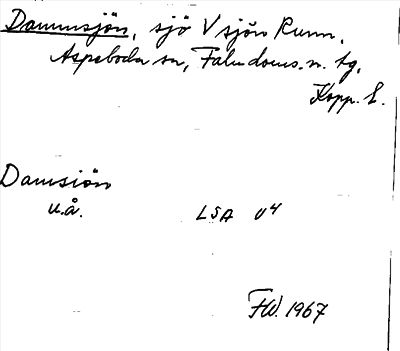 Dammsjön, sjö V sjön Runn,
Aspeboda sn, Falu doms. n. tg,
Kopp. l.
Damsiön
u.å. LSA U4
FW. 1967